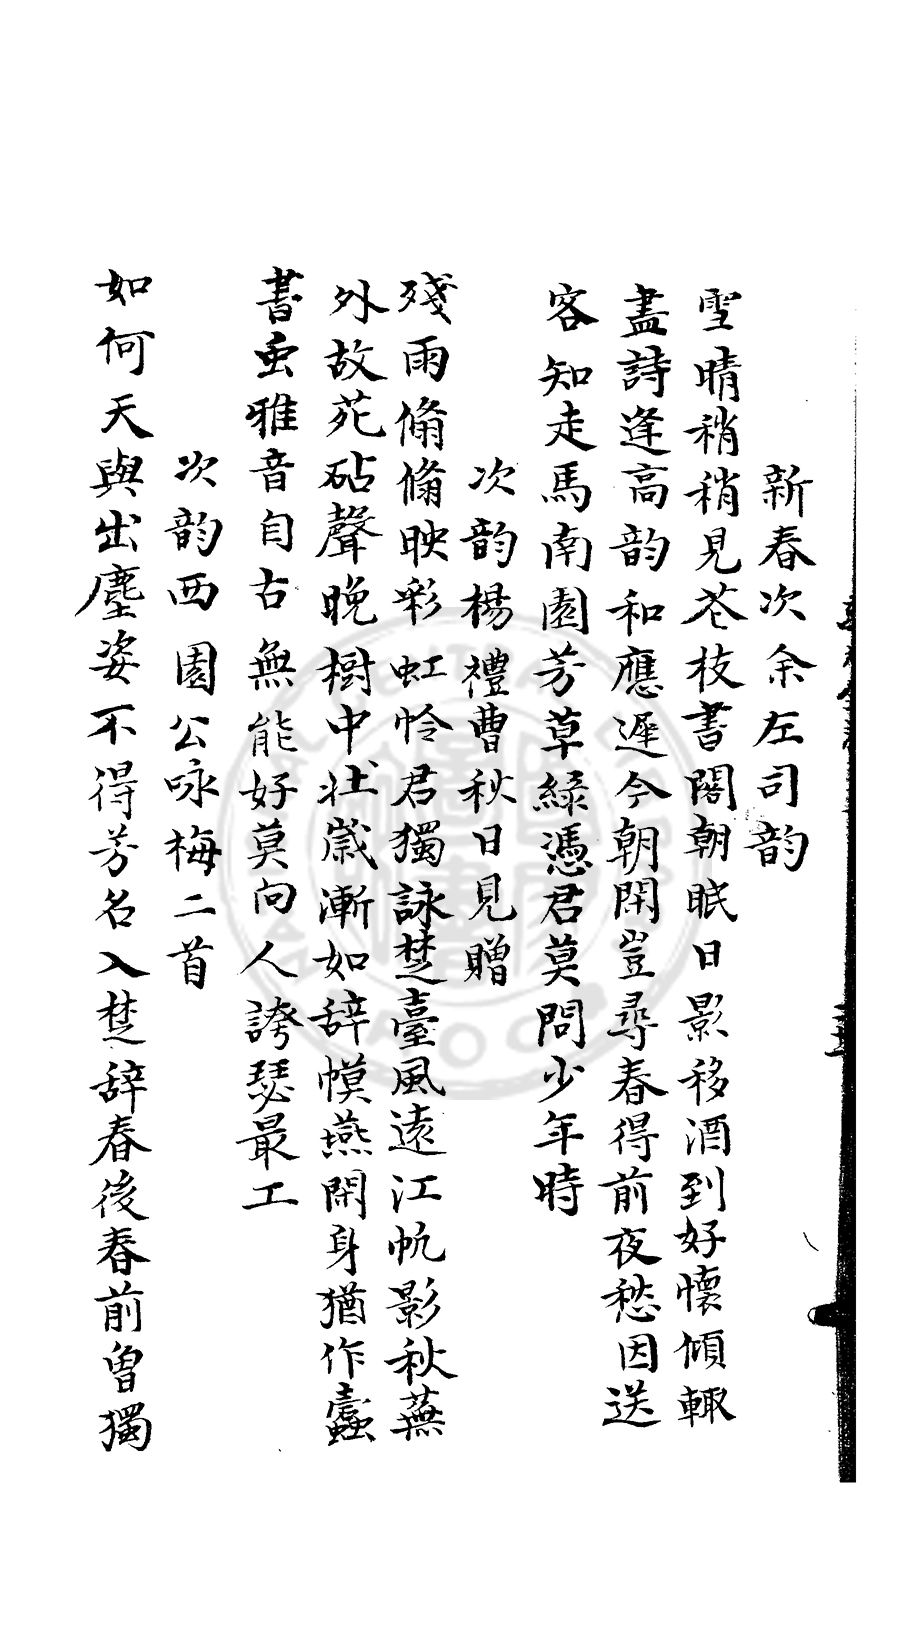 新春次余左司韵
雪晴稍稍見苍枝書閣朝眠日影移酒到好懷傾輙
盡詩逢高韵和應遲今朝閑豈尋春得前夜愁因送
客知走馬南園芳草綠憑君莫問少年時
次韵楊禮曹秋日見贈
殘雨翛翛映彩虹怜君獨詠楚臺風遠江帆影秋蕪
外故苑砧聲晚樹中壯歲漸如辞幙燕閑身猶作蠹
書虫雅音自古無能好莫向人誇瑟最工
次韵西園公咏梅二首
如何天與出塵姿不得芳名入楚辞春後春前曾獨